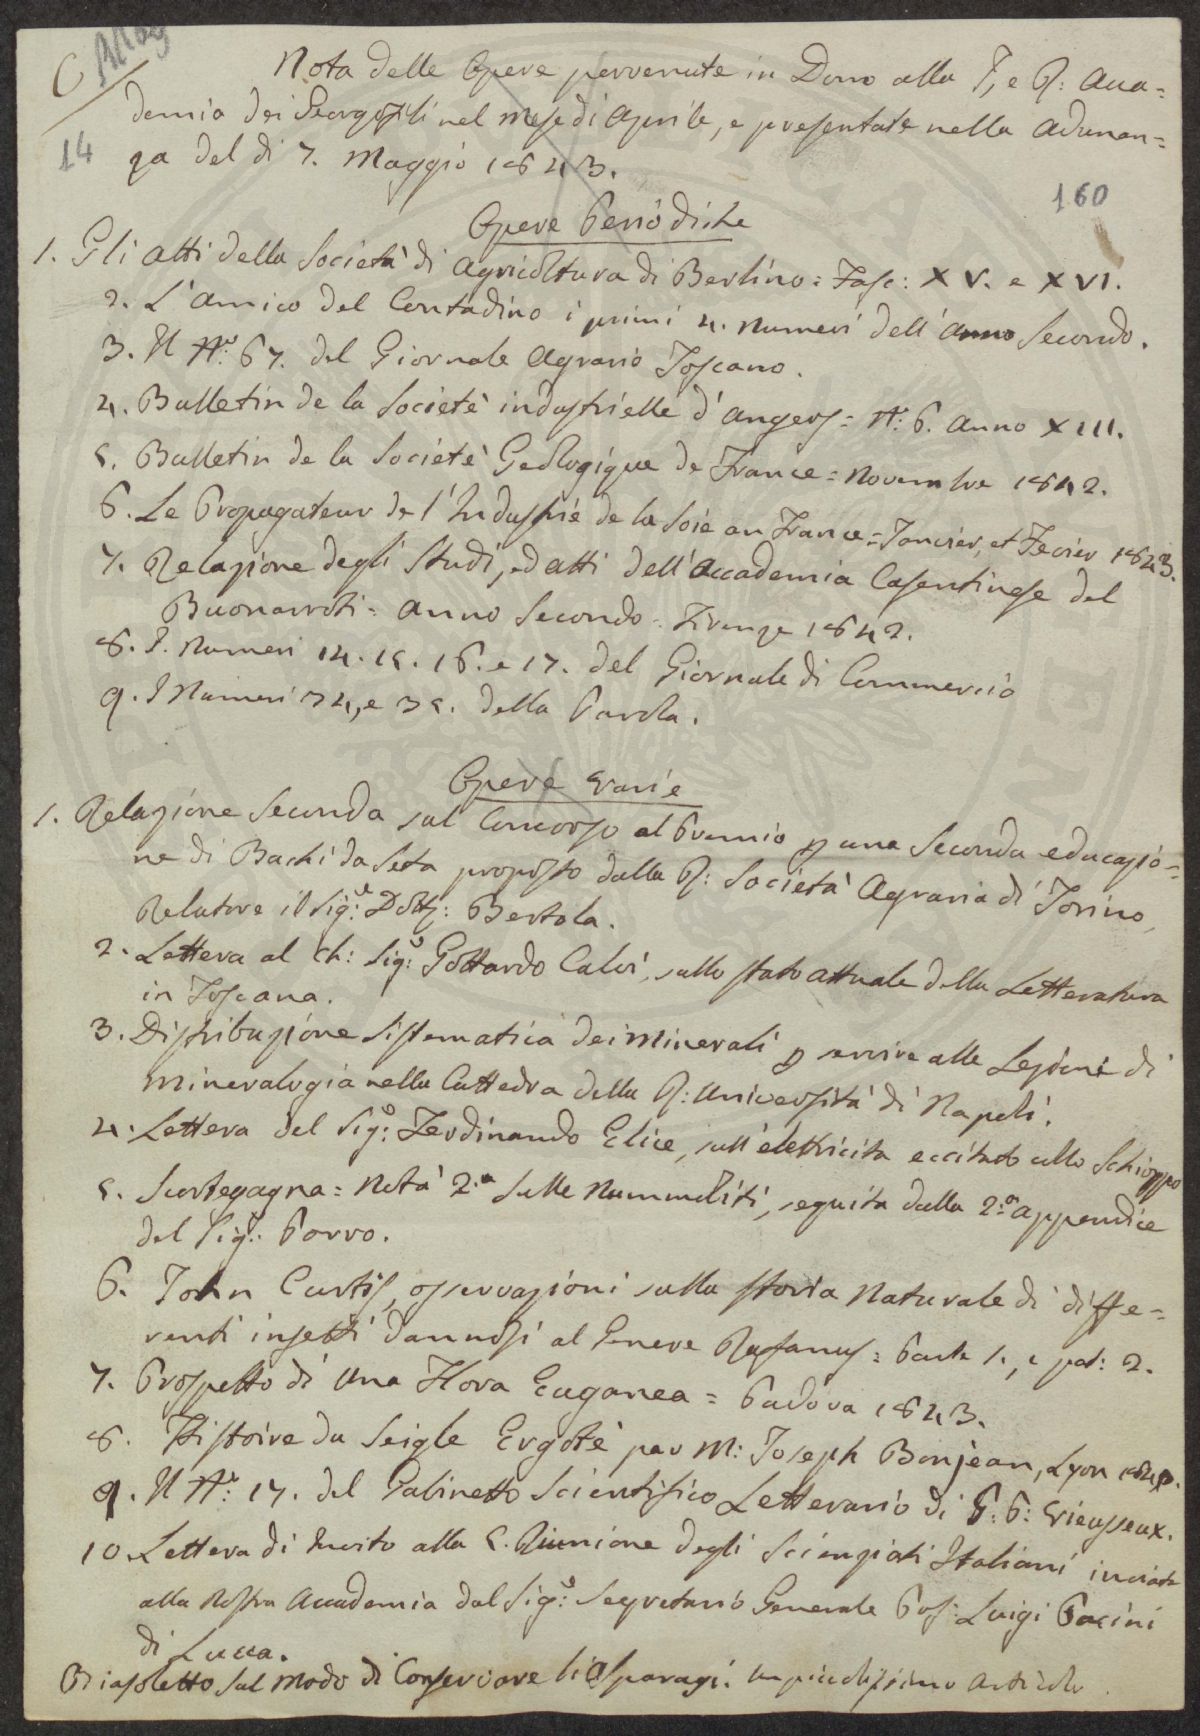 Nota delle Opere pervenute in Dono alla I, e R: Acca=
demia dei Georgofili nel Mese di Aprile, e presentate nella Adunan=
za del dì 7. Maggio 1843.
14
160
Opere Periodiche
1. Gli Atti della Società di Agricoltura di Berlino = Fasc: XV. e XVI.
2. L'Amico del Contadino i primi 4. Numeri dell'Anno Secondo.
3. Il N.º 67. del Giornale Agrario Toscano.
4. Bulletin de la Societè industrielle d'Angers = N.º 6. Anno XIII.
5. Bulletin de la Societè Geologique de France = Novembre 1842.
6. Le Propagateur de l'Industrie de la Soie en France = Janvier, et Fevier 1843.
7. Relazione degli Studi, ed atti dell'Accademia Casentinese del
Buonarroti = Anno Secondo = Firenze 1842.
8. I. Numeri 14. 15. 16. e 17. del Giornale di Commercio
9. I Numeri 34, e 35. della Parola.
Opere Varie
1. Relazione Seconda sul Concorso al Premio p una Seconda educazio=
ne di Bachi da Seta proposto dalla R: Società Agraria di Torino,
Relatore il Sig.e Dott: Bertola.
2. Lettera al Ch: Sig.e Gottardo Calvi, sullo stato attuale della Letteratura
in Toscana.
3. Distribuzione Sistematica dei Minerali p servire alle Lezioni di
Mineralogia nella Cattedra della R: Università di Napoli.
4. Lettera del Sig.e Ferdinando Elice, sull'elettricita eccitato allo Schioppo
5. Scortegagna = Nota 2.a Sulle Nummoliti, seguita dalla 2.a appendice
del Sig.e Porro.
6. John Curtis, osservazioni sulla storia Naturale di diffe=
renti insetti dannosi al Genere Rafanus = Parte 1., e par: 2.
7. Prospetto di Una Flora Euganea = Padova 1843.
8. Histoire du Seigle Ergotè par M: Joseph Bonjean, Lyon
9. Il N.º 17. del Gabinetto Scientifico Letterario di G. P: Vieusseux.
10. Lettera di Invito alla 5. Riunione degli Scienziati Italiani inviata
alla Nostra Accademia dal Sig.e Segretario Generale Pros: Luigi Pacini
di Lucca.
Biasoletto Sul Modo di Conservare li Asparagi. Un piccolissimo Articolo.